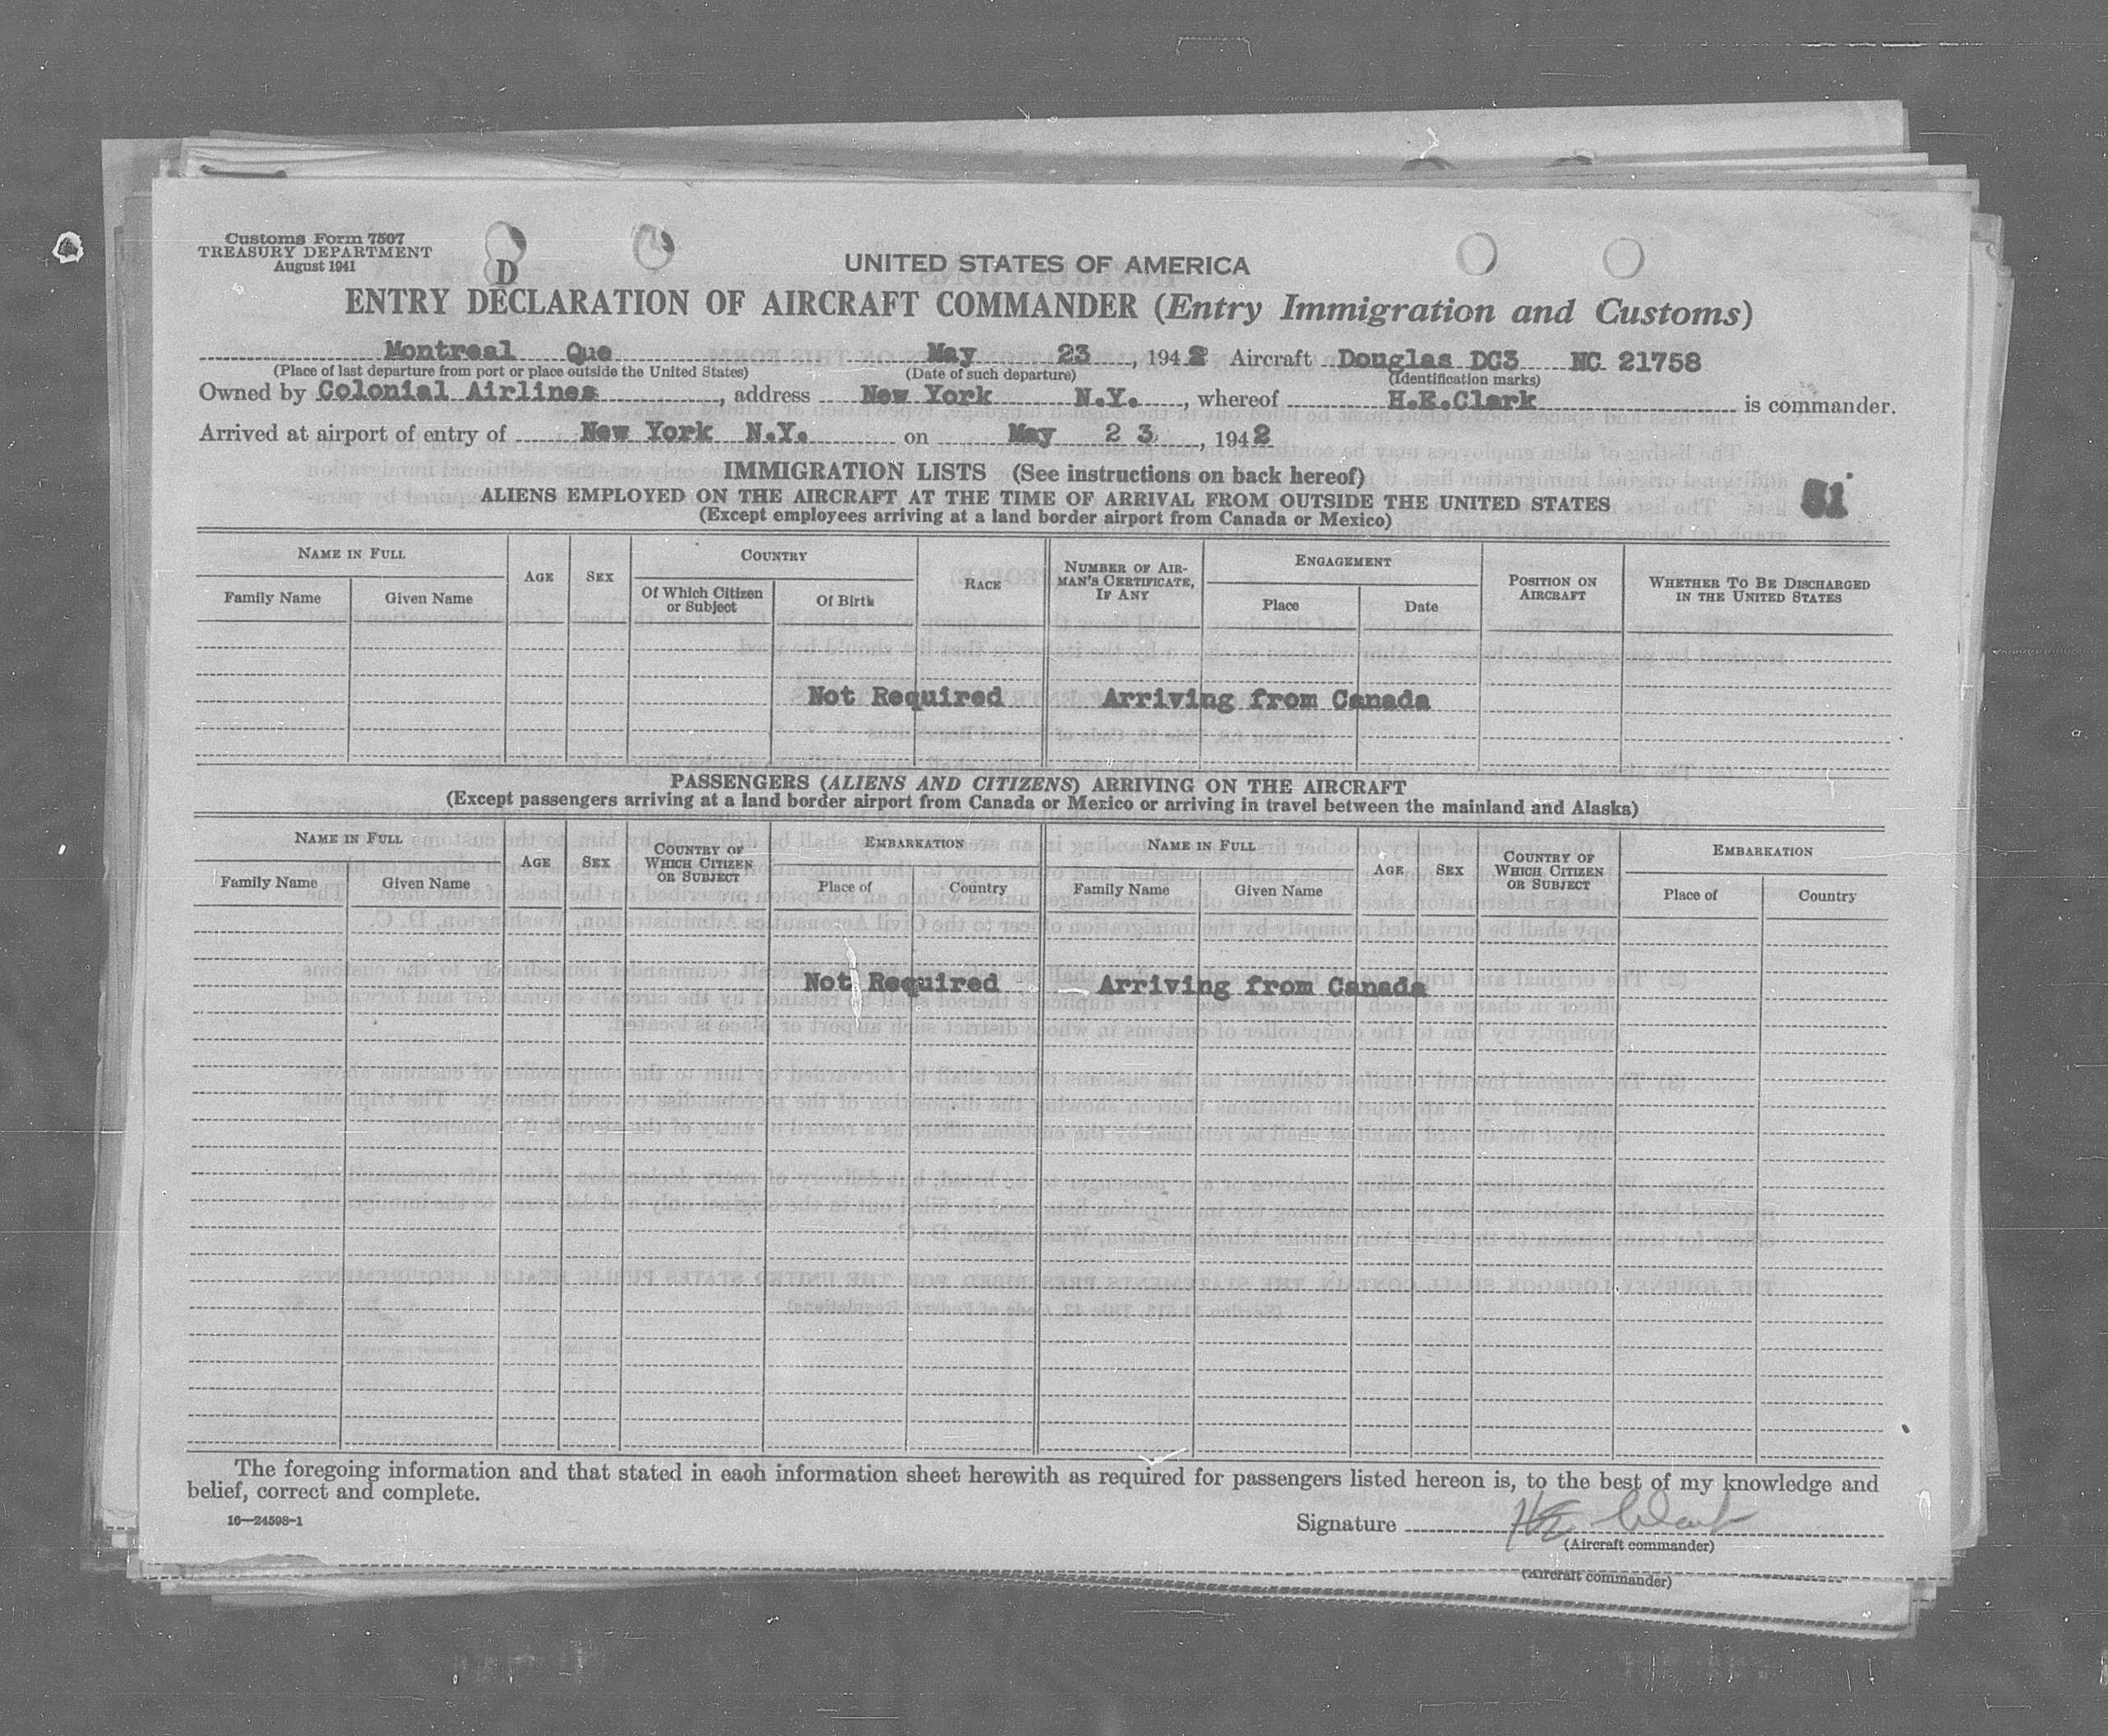 Customs Form 7507
TREASURY DEPARTMENT
August 1941
D
UNITED STATES OF AMERICA
ENTRY DECLARATION OF AIRCRAFT COMMANDER (Entry Immigration and Customs)
Montreal Que May 23, 1942 Aircraft Douglas DC3 NC 21758
(Place of last departure from port or place outside the United States) (Date of such departure) (Identification marks)
Owned by Colonial Airlines, address New York N.Y., whereof H.E.Clark is commander.
Arrived at airport of entry of New York N.Y. on May 23, 1942
IMMIGRATION LISTS (See instructions on back hereof)
ALIENS EMPLOYED ON THE AIRCRAFT AT THE TIME OF ARRIVAL FROM OUTSIDE THE UNITED STATES
(Except employees arriving at a land border airport from Canada or Mexico)
NAME IN FULL
Family Name Given Name
AGE
SEX
COUNTRY
Of Which Citizen or Subject
Of Birth
RACE
NUMBER OF AIR-
MAN'S CERTIFICATE,
IF ANY
ENGAGEMENT
Place Date
POSITION ON
AIRCRAFT
WHETHER TO BE DISCHARGED
IN THE UNITED STATES
Not Required Arriving from Canada
PASSENGERS (ALIENS AND CITIZENS) ARRIVING ON THE AIRCRAFT
(Except passengers arriving at a land border airport from Canada or Mexico or arriving in travel between the mainland and Alaska)
NAME IN FULL
Family Name Given Name
AGE
SEX
COUNTRY OF
WHICH CITIZEN
OR SUBJECT
EMBARKATION
Place of Country
NAME IN FULL
Family Name Given Name
AGE
SEX
COUNTRY OF
WHICH CITIZEN
OR SUBJECT
EMBARKATION
Place of Country
Not Required Arriving from Canada
The foregoing information and that stated in each information sheet herewith as required for passengers listed hereon is, to the best of my knowledge and
belief, correct and complete.
16—24598-1
Signature HE Clark
(Aircraft commander)
(Aircraft commander)